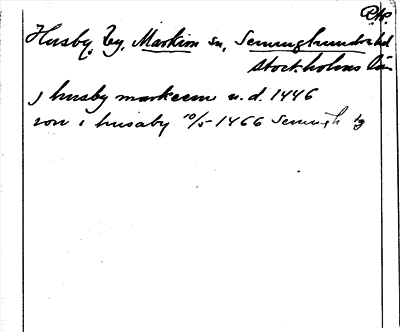 Husby, by, Markim sn, Seminghundra hd
Stockholms län
j husby markeem u.d. 1446
i husaby 10/5 1466